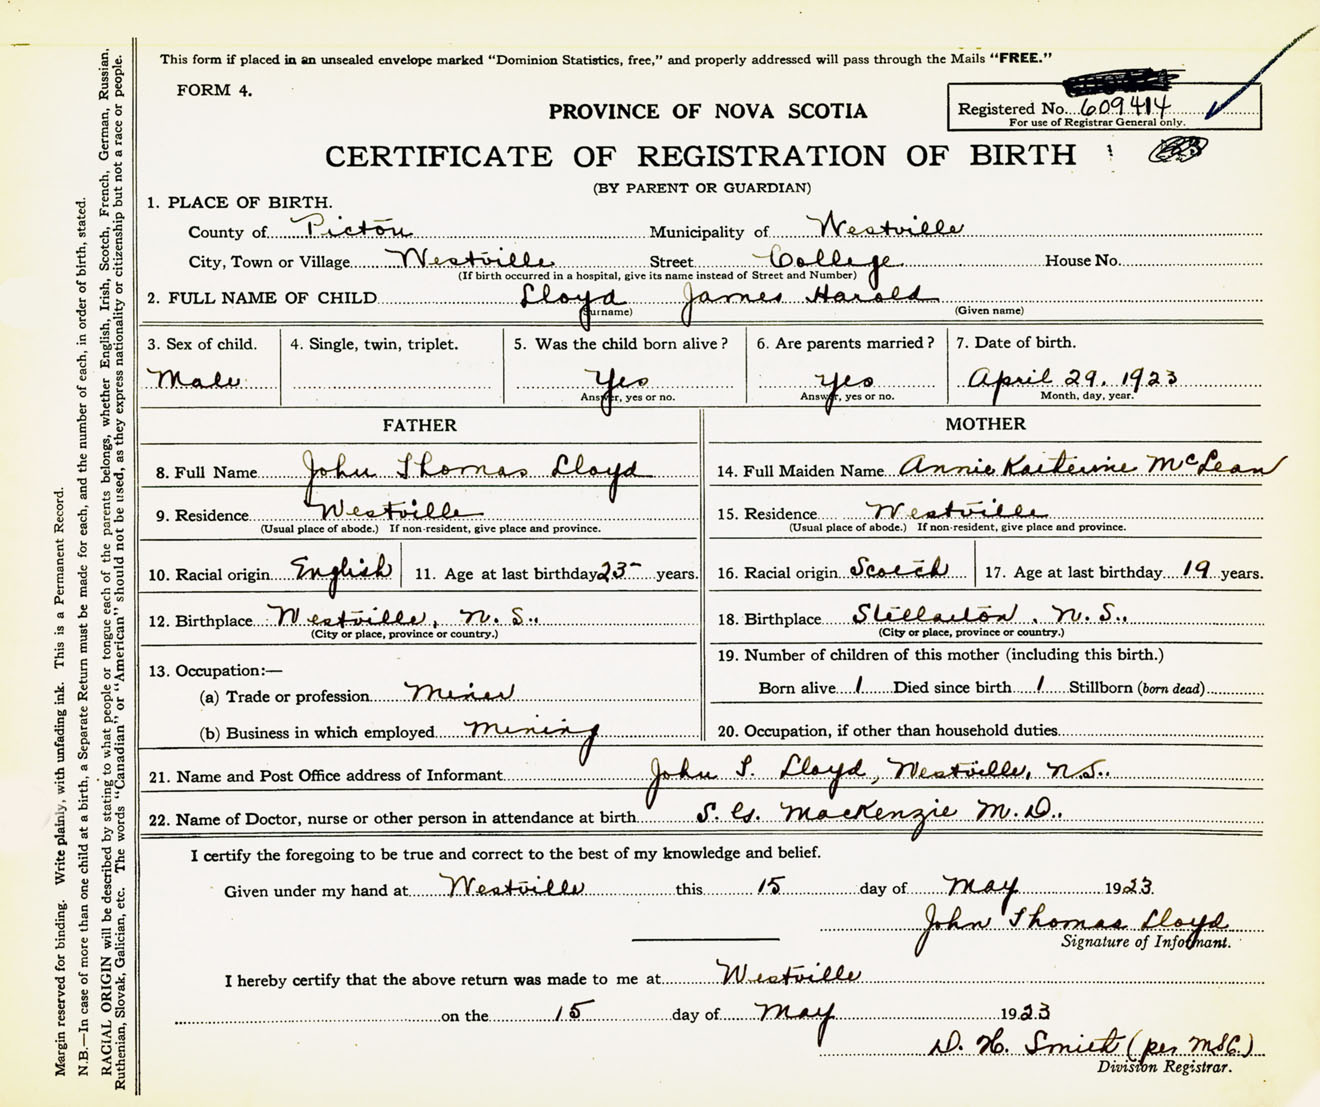 This form if placed in an unsealed envelope marked “Dominion Statistics, free,” and properly addressed will pass through the Mails “FREE.”
FORM 4.
PROVINCE OF NOVA SCOTIA
Registered No. 609414
For use of Registrar General only.
CERTIFICATE OF REGISTRATION OF BIRTH
(BY PARENT OR GUARDIAN)
1. PLACE OF BIRTH.
County of Pictou Municipality of Westville
City, Town or Village Westville Street College House No.
(If birth occurred in a hospital, give its name instead of Street and Number)
2. FULL NAME OF CHILD Lloyd James Harold
(Surname) (Given name)
3. Sex of child. 4. Single, twin, triplet. 5. Was the child born alive? 6. Are parents married? 7. Date of birth.
Male Yes yes April 29, 1923
Answer, yes or no. Answer, yes or no. Month, day, year.
FATHER MOTHER
8. Full Name John Thomas Lloyd 14. Full Maiden Name Annie Katherine McLean
9. Residence Westville 15. Residence Westville
(Usual place of abode.) If non-resident, give place and province. (Usual place of abode.) If non-resident, give place and province.
10. Racial origin English 11. Age at last birthday 23 years. 16. Racial origin Scotch 17. Age at last birthday 19 years.
12. Birthplace Westville, N. S. 18. Birthplace Stellarton, N. S.
(City or place, province or country.) (City or place, province or country.)
13. Occupation:— 19. Number of children of this mother (including this birth.)
(a) Trade or profession Miner Born alive 1 Died since birth 1 Stillborn (born dead)
(b) Business in which employed Mining 20. Occupation, if other than household duties
21. Name and Post Office address of Informant John T. Lloyd, Westville, N.S.
22. Name of Doctor, nurse or other person in attendance at birth S. G. MacKenzie M. D.
I certify the foregoing to be true and correct to the best of my knowledge and belief.
Given under my hand at Westville this 15 day of May 1923
John Thomas Lloyd
Signature of Informant.
I hereby certify that the above return was made to me at Westville
on the 15 day of May 1923
D. H. Smith (per MSC.)
Division Registrar.
Margin reserved for binding. Write plainly, with unfading ink. This is a Permanent Record.
N.B.—In case of more than one child at a birth, a Separate Return must be made for each, and the number of each, in order of birth, stated.
RACIAL ORIGIN will be described by stating to what people or tongue each of the parents belongs, whether English, Irish, Scotch, French, German, Russian,
Ruthenian, Slovak, Galician, etc. The words “Canadian” or “American” should not be used, as they express nationality or citizenship but not a race or people.